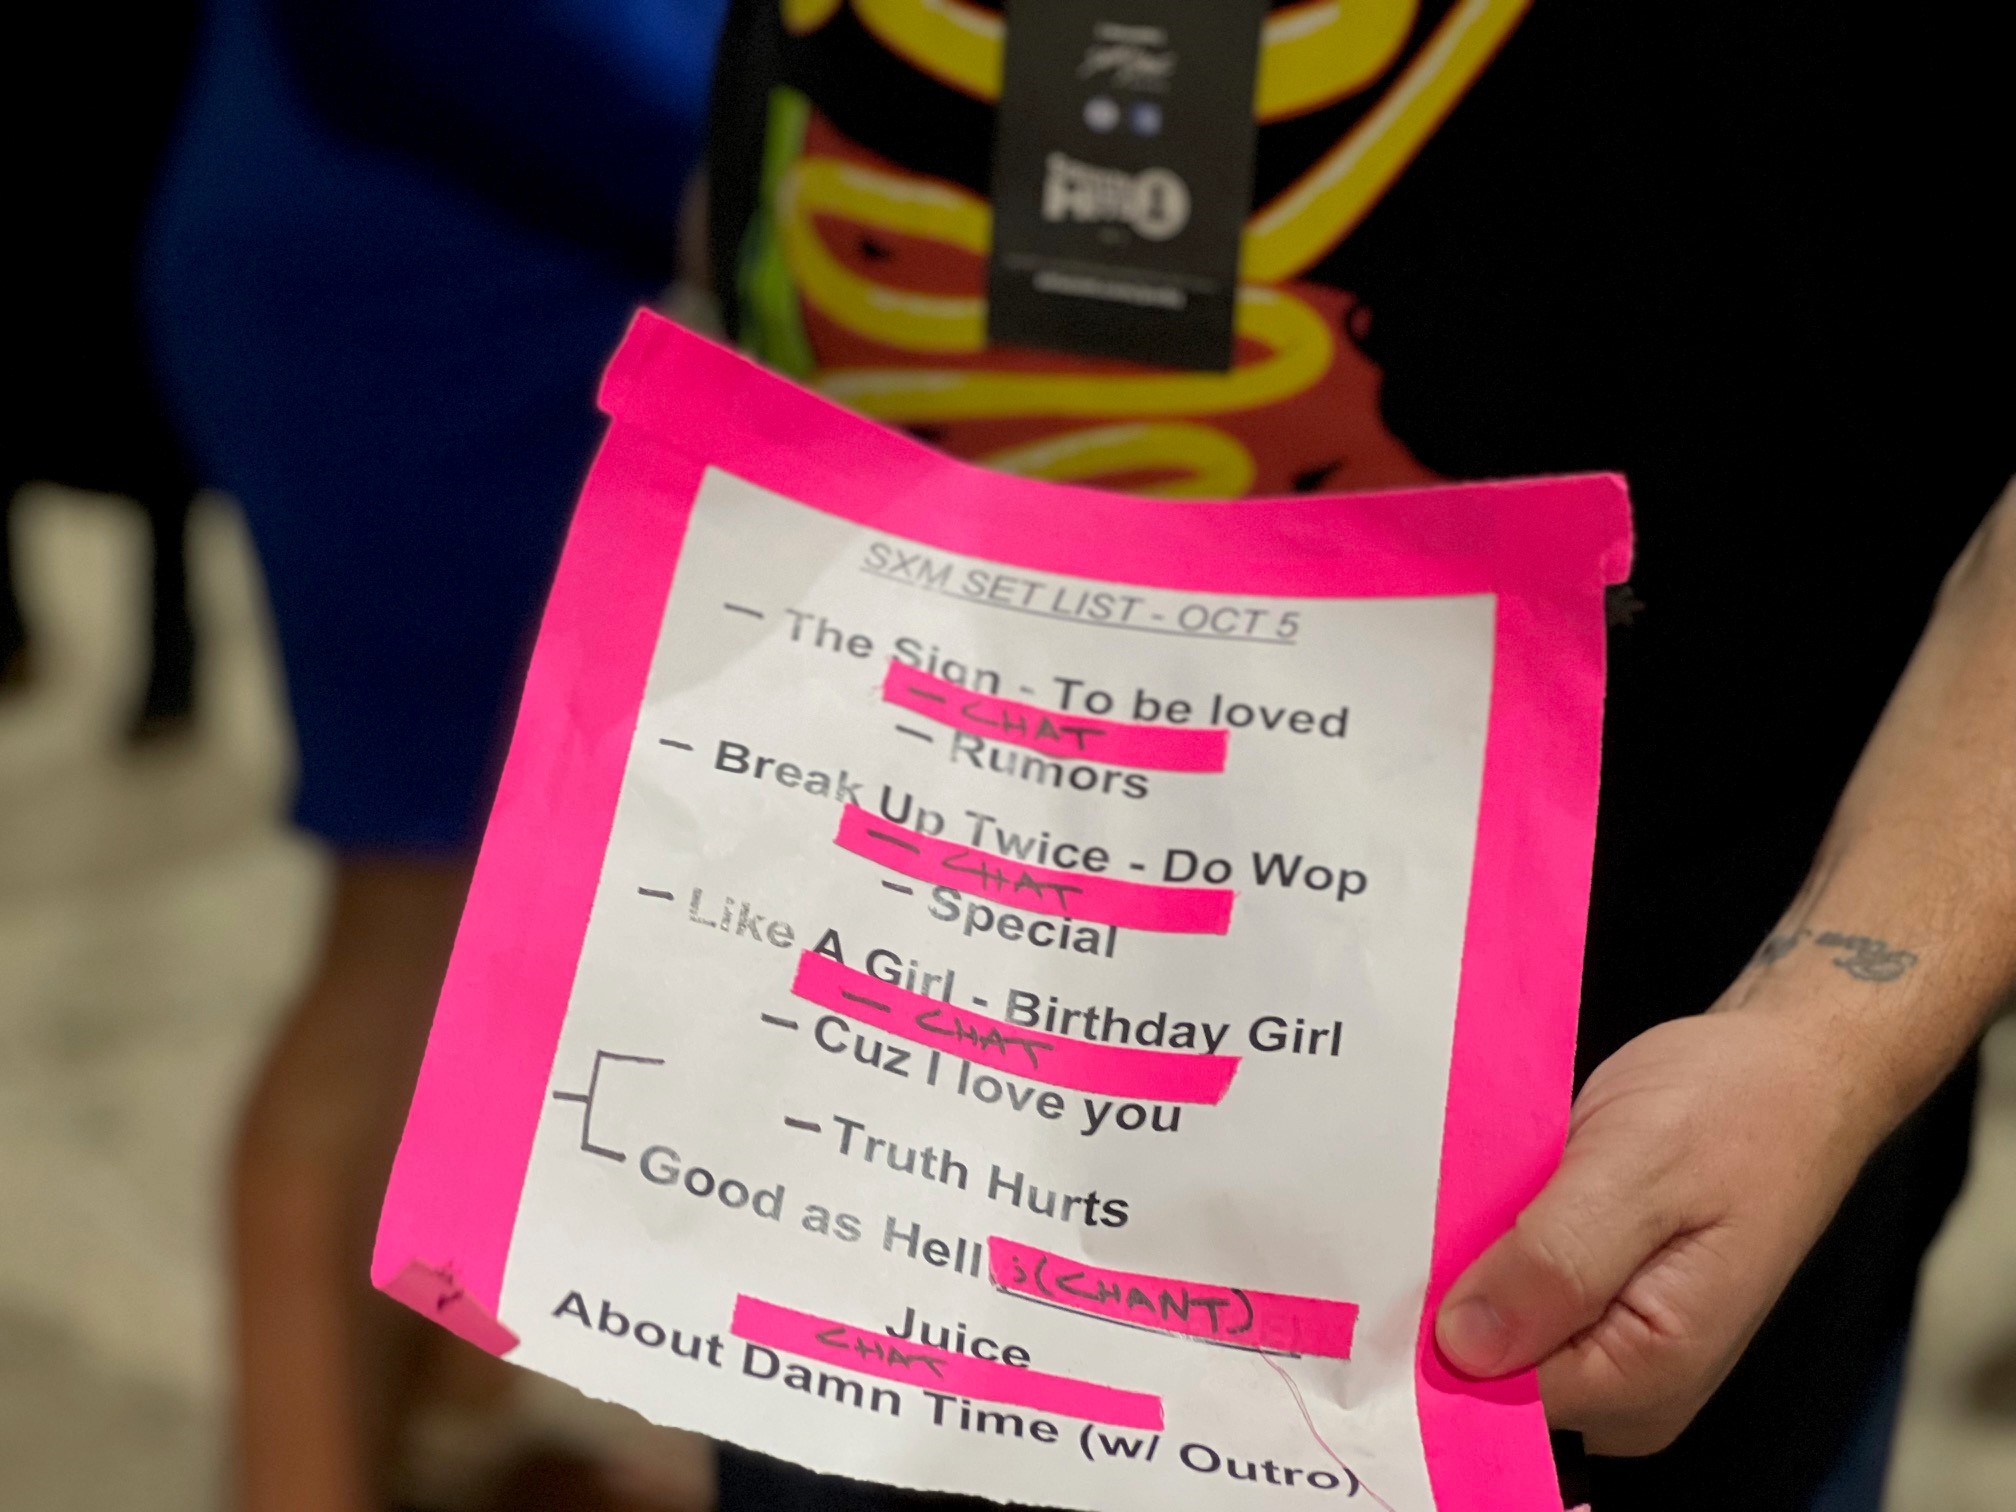 SXM SET LIST - OCT 5
– The Sign - To be loved
– CHAT
– Rumors
– Break Up Twice - Do Wop
– CHAT
– Special
– Like A Girl - Birthday Girl
– CHAT
– Cuz I love you
– Truth Hurts
Good as Hell ;(CHANT)
Juice
CHAT
About Damn Time (w/ Outro)